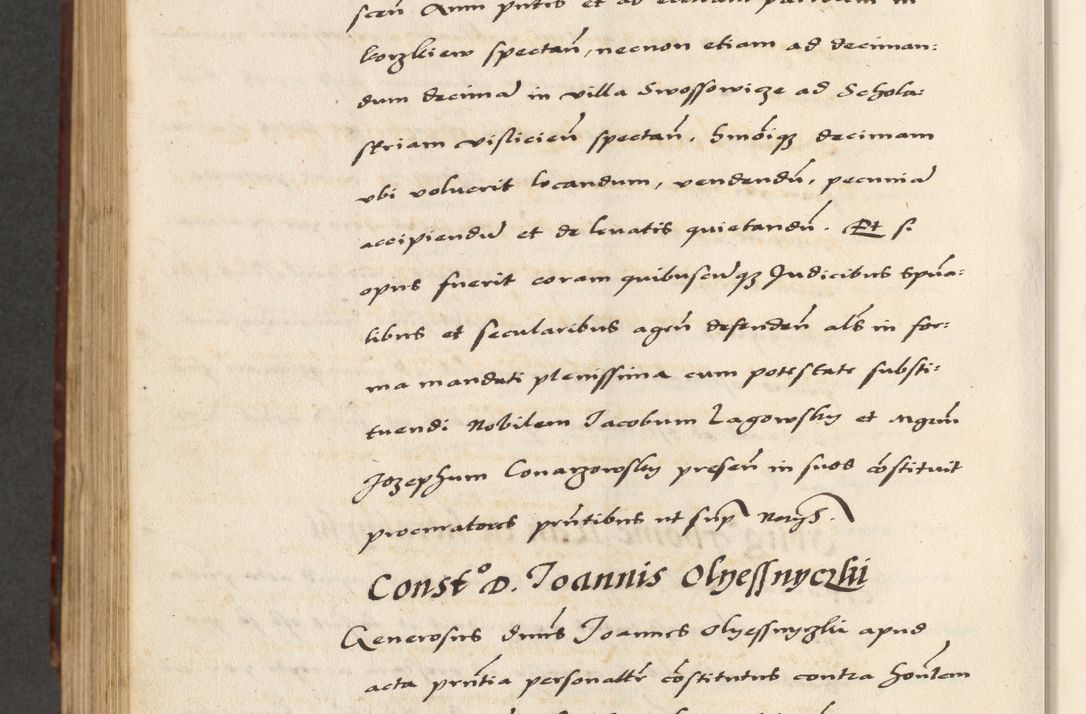 korzkiew spectan̄, necnon etiam ad deciman:
dum decimā in villa Swossowicze ad Schola:
striam vislicien̄ spectan̄. Hmōiqȝ decimam
vbi voluerit locandum, vendendū, pecuniā
accipiendū et de levatis quietandū. Et si
opus fuerit coram quibuscūqȝ Judicibus Spūa:
libus et secularibus agen̄ defenden̄ al̄s in for:
ma mandati plenissima cum potestate substi:
tuendi Nobilem Jacobum Lagowsky et Mgrm̄
Jozephum Conarzowsky presen̄ in suos cōstituit
procuratores prn̄tibus ut sup̄
Const.º D. Joannis Olyessnyczkii
Generosus dn̄us Joannes Olyessnyczkii apud
acta prn̄tia personalr̄ cōstitutus contra hon̄tem